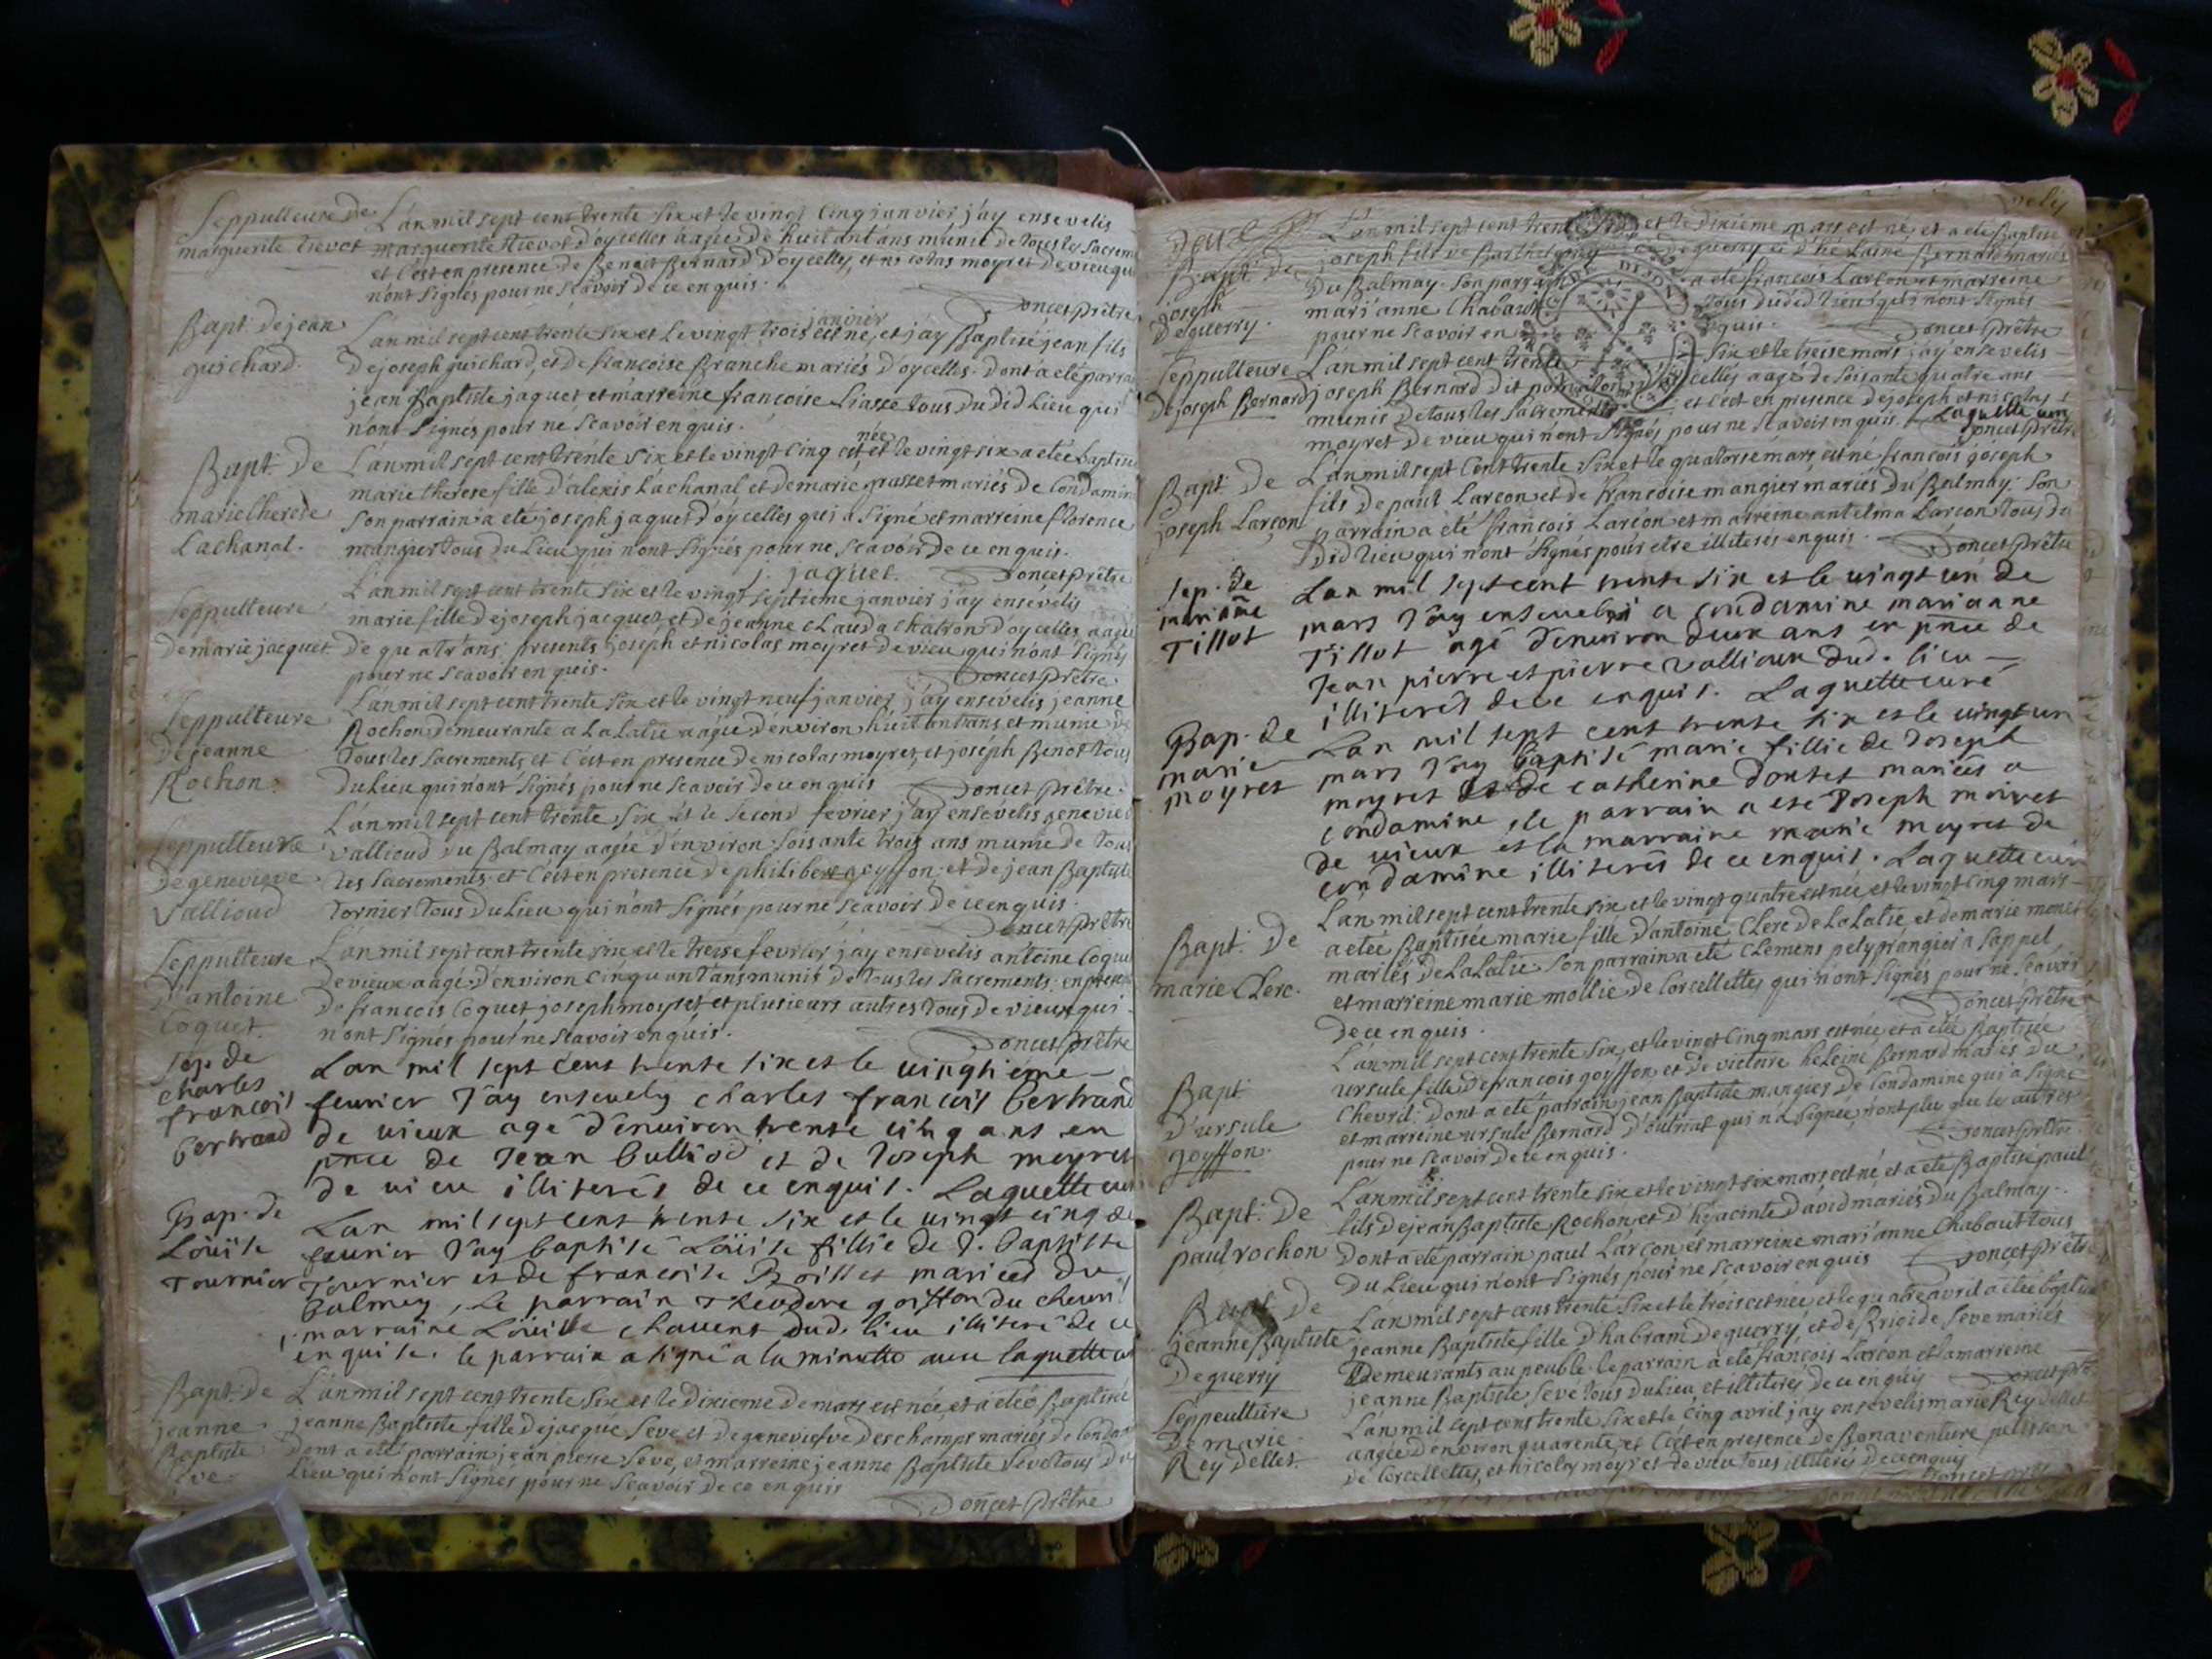 Seppulteure de
marguerite trevot
L'an mil sept cent trente six et le vingt cinq janvier j'ay ensevelis
marguerite trevot d'oycelles aagée de huitant ans munie de tous les Sacrem
et c'est en presence de Benoit Bernard d'oycelles, et nicolas moyret de vieu qui
n'ont signés pour ne scavoir de ce enquis.
Doncet prêtre
Bapt. de jean
guichard.
L'an mil sept cent trente six et le vingt trois janvier est né, et j'ay Baptisé jean fils
de joseph guichard, et de francoise Branche mariés d'oycelles. dont a eté parra
jean Baptiste jaquet et marreine francoise Liasse tous du did Lieu qui
n'ont signés pour ne scavoir enquis.
Bapt. de
marie therese
Lachanal.
L'an mil sept cent trente six et le vingt cinq est née et le vingt six a etée Baptisée
marie therese fille d'alexis Lachanal et de marie grasset mariés de Condamin
son parrain a eté joseph jaquet d'oycelles qui a signé et marreine florence
mangier tous du Lieu qui n'ont signés pour ne scavoir de ce enquis.
j. jaquet. Doncet prêtre
Seppulteure
de marie jacquet
L'an mil sept cent trente six et le vingt septieme janvier j'ay ensevelis
marie fille de joseph jacquet et de jeanne clauda chatron d'oycelles aagée
de quatr'ans. presents joseph et nicolas moyret de vieu qui n'ont signés
pour ne scavoir enquis.
Doncet prêtre.
Seppulteure
de jeanne
Rochon.
L'an mil sept cent trente six et le vingt neuf janvier j'ay ensevelis jeanne
Rochon demeurante a La Latie aagée d'environ huitantans, et munie de
tous les sacrements et c'est en presence de nicolas moyret, et joseph Benot tous
du Lieu qui n'ont signés pour ne scavoir de ce enquis
Doncet prêtre.
Seppulteure
de genevieve
Vallioud
L'an mil sept cent trente six et le second fevrier j'ay ensevelis geneviev
vallioud du Balmay aagée d'environ soisante trois ans munie de tous
les sacrements. et c'est en presence de philibert goyffon, et de jean Baptiste
tornier tous du Lieu qui n'ont signés pour ne scavoir de ce enquis.
Doncet prêtre
Seppulteure
d'antoine
Coquet.
L'an mil sept cent trente six, et le treise fevrier j'ay ensevelis antoine Coquet
de vieux aagé d'environ cinquantans munis de tous les sacrements. en presen
de francois Coquet joseph moyret, et plusieurs autres tous de vieux qui
n'ont signés pour ne scavoir enquis.
Doncet prêtre
Sep. de
charles
francois
bertrand
Lan mil sept cent trente six et le vingtieme
feuvrier J'ay ensevely charles francois bertrand
de vieux agé d'environ trente cinq ans en
pnce de Jean bulliod et de Joseph moyret
de vieu illiterés de ce enquis. Laguette curé
Bap. de
Loüise
Tournier
Lan mil sept cent trente six et le vingt cinq de
feuvrier J'ay baptisé Loüise fillie de J. baptiste
Tournier et de francoise Boillet mariés du
balmey, Le parrain Theodore goiffon du chevril
marraine Loüise chavent dud. lieu illiteré de ce
enquise. le parrain a signé a la minutte avec laguette cu
Bapt. de
jeanne
Baptiste
Seve.
L'an mil sept cent trente six et le dixieme de mars est née, et a etée Baptisée
jeanne Baptiste fille de jacque Seve et de genevieve Deschamps mariés de Conda
dont a eté parrain jean pierre Seve, et marreine jeanne Baptiste Seve tous du
Lieu qui n'ont signés pour ne scavoir de ce enquis
Doncet prêtre
Bapt. de
joseph
Deguerry.
L'an mil sept cent trente six et le dixieme mars est né, et a eté Baptisé
joseph fils de Barthelemy Deguerry et d'helaine Bernard mariés
du Balmay. son parrain a eté francois Larcon et marreine
mari'anne Chabaut tous du did Lieu qui n'ont signés
pour ne scavoir enquis.
Doncet prêtre
Seppulteure
de joseph Bernard
L'an mil sept cent trente six et le treise mars j'ay ensevelis
joseph Bernard dit d'oycelles aagé de soisante quatre ans
munis de tous les sacrements et c'est en presence de joseph et nicolas
moyret de vieu qui n'ont signés pour ne scavoir enquis.
Doncet prêtre
Bapt. de
joseph Larcon
L'an mil sept cent trente six et le quatorse mars, est né francois joseph
fils de paul Larcon et de francoise mangier mariés du Balmay. son
parrain a eté francois Larcon et marreine antelma Larcon tous du
did Lieu qui n'ont signés pour etre illiterés enquis.
Doncet prêtre
Sep. de
marianne
Tillot
Lan mil sept cent trente six et le vingt un de
mars J'ay ensevely a condamine marianne
Tillot agé d'environ deux ans en pnce de
Jean pierre et pierre vallioux dud. lieu
illiterés de ce enquis. Laguette curé
Bap. de
marie
moyret
Lan mil sept cent trente six et le vingt un
mars J'ay baptisé marie fillie de Joseph
moyret et de catherine donset mariés a
condamine, le parrain a este Joseph moiret
de vieux et la marraine marie moyret de
condamine illiterés de ce enquis. Laguette curé
Bapt. de
marie Clerc.
L'an mil sept cent trente six et le vingt quatre est née et le vingt cinq mars
a etée Baptisée marie fille d'antoine Clerc de La Latie et de marie monet
mariés de La Latie. son parrain a eté Clemens pelyprangier a sappel
et marreine marie mollie de Corcellettes qui n'ont signés pour ne scavoir
de ce enquis.
Doncet prêtre
Bapt.
d'ursule
goyffon.
L'an mil sept cent trente six, et le vingt cinq mars est née, et a etée Baptisée
ursule fille de francois goyffon et de victoire heleine Bernard mariés du
Chevril. dont a eté parrain jean Baptiste mangier de Condamine qui a signé
et marreine ursule Bernard d'oulriat qui n'a signée, non plus que les autres
pour ne scavoir de ce enquis.
Doncet prêtre
Bapt. de
paul rochon
L'an mil sept cent trente six et le vingt six mars est né, et a eté Baptisé paul
fils de jean Baptiste Rochon, et d'hyacinte David mariés du Balmay.
Dont a eté parrain paul Larcon, et marreine mari'anne Chabaut tous
du Lieu qui n'ont signés pour ne scavoir enquis
Doncet prêtre
Bapt. de
jeanne Baptiste
Deguerry
L'an mil sept cent trente six et le trois est née, et le quatre avril a etée baptisée
jeanne Baptiste fille d'habram Deguerry, et de Brigide Seve mariés
demeurants au peuble. le parrain a eté francois Larcon et la marreine
jeanne Baptiste Seve tous du Lieu et illiterés de ce enquis
Doncet prê
Seppeulture
de marie
Rey dellet
L'an mil sept cent trente six et le cinq avril j'ay ensevelis marie Rey dellet
aagée d'environ quarente, et c'est en presence de Bonaventure pelisson
de Corcellettes, et nicolas moyret de vieu tous illiterés de ce enquis
Doncet prêt